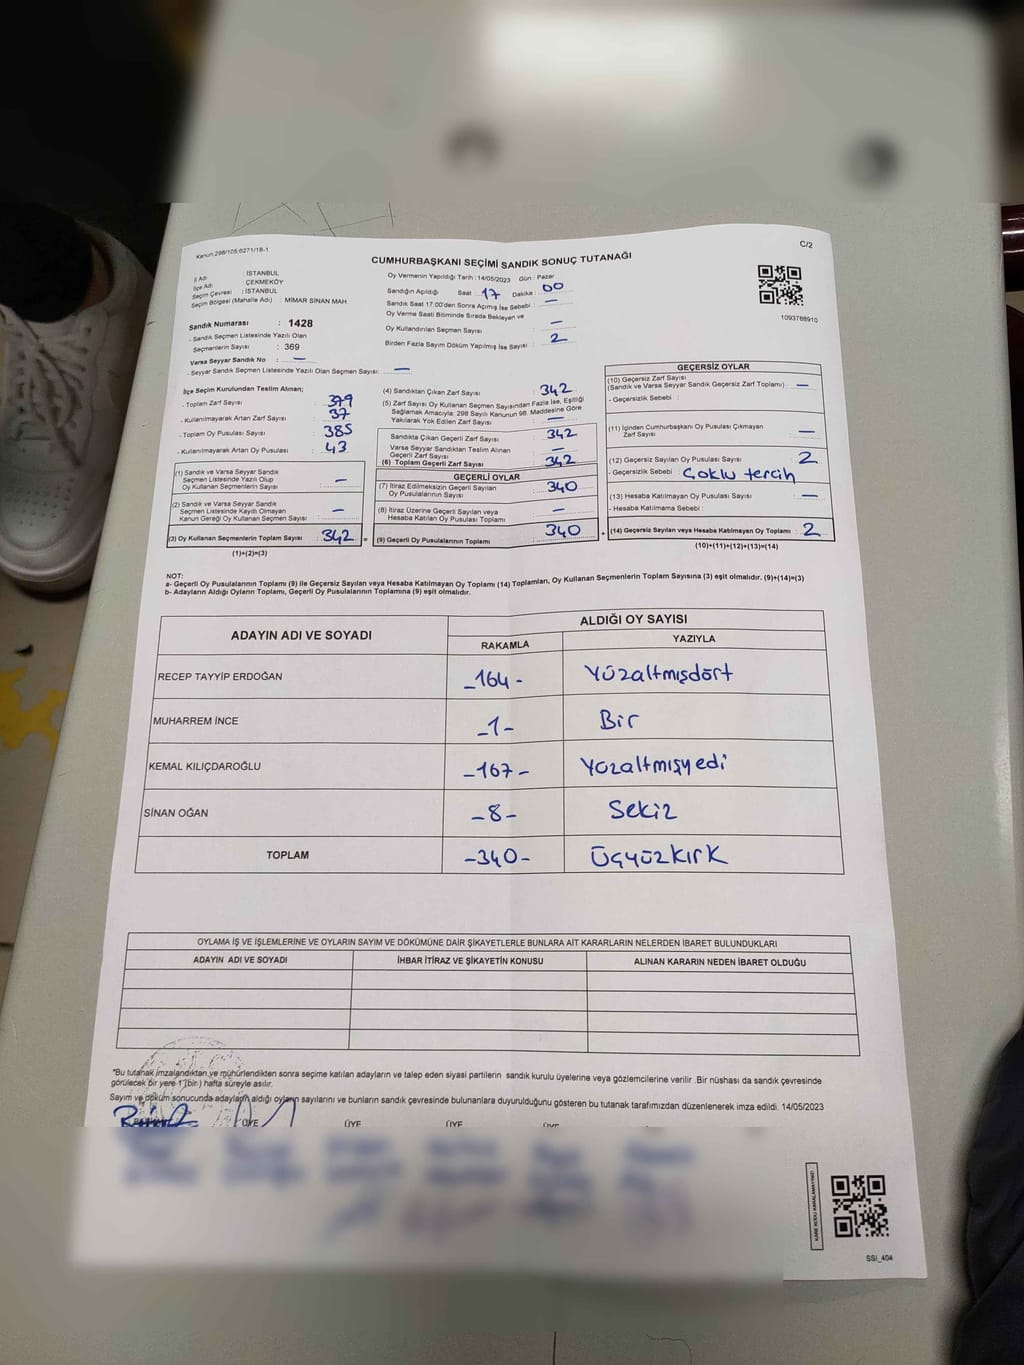 Kanun:298/105,6271/18-1
C/2
CUMHURBAŞKANI SEÇİMİ SANDIK SONUÇ TUTANAĞI
İl Adı : İSTANBUL
İlçe Adı : ÇEKMEKÖY
Seçim Çevresi : İSTANBUL
Seçim Bölgesi (Mahalle Adı) : MİMAR SİNAN MAH
Sandık Numarası : 1428
- Sandık Seçmen Listesinde Yazılı Olan
Seçmenlerin Sayısı : 369
Varsa Seyyar Sandık No : —
- Seyyar Sandık Seçmen Listesinde Yazılı Olan Seçmen Sayısı: —
Oy Vermenin Yapıldığı Tarih : 14/05/2023 Gün : Pazar
Sandığın Açıldığı Saat : 17 Dakika : 00
Sandık Saat 17:00'den Sonra Açmış İse Sebebi : —
Oy Verme Saati Bitiminde Sırada Bekleyen ve
Oy Kullandırılan Seçmen Sayısı : —
Birden Fazla Sayım Döküm Yapılmış İse Sayısı : 2
1093788910
İlçe Seçim Kurulundan Teslim Alınan;
- Toplam Zarf Sayısı : 379
- Kullanılmayarak Artan Zarf Sayısı : 37
- Toplam Oy Pusulası Sayısı : 385
- Kullanılmayarak Artan Oy Pusulası : 43
(1) Sandık ve Varsa Seyyar Sandık
Seçmen Listesinde Yazılı Olup
Oy Kullanan Seçmenlerin Sayısı : —
(2) Sandık ve Varsa Seyyar Sandık
Seçmen Listesinde Kayıtlı Olmayan
Kanun Gereği Oy Kullanan Seçmen Sayısı : —
(3) Oy Kullanan Seçmenlerin Toplam Sayısı : 342 =
(1)+(2)=(3)
(4) Sandıktan Çıkan Zarf Sayısı : 342
(5) Zarf Sayısı Oy Kullanan Seçmen Sayısından Fazla İse, Eşitliği
Sağlamak Amacıyla, 298 Sayılı Kanunun 98. Maddesine Göre
Yakılarak Yok Edilen Zarf Sayısı : —
Sandıkta Çıkan Geçerli Zarf Sayısı : 342
Varsa Seyyar Sandıktan Teslim Alınan
Geçerli Zarf Sayısı : —
(6) Toplam Geçerli Zarf Sayısı : 342
GEÇERLİ OYLAR
(7) İtiraz Edilmeksizin Geçerli Sayılan
Oy Pusulalarının Sayısı : 340
(8) İtiraz Üzerine Geçerli Sayılan veya
Hesaba Katılan Oy Pusulası Toplamı : —
(9) Geçerli Oy Pusulalarının Toplamı : 340 +
GEÇERSİZ OYLAR
(10) Geçersiz Zarf Sayısı
(Sandık ve Varsa Seyyar Sandık Geçersiz Zarf Toplamı) : —
- Geçersizlik Sebebi :
(11) İçinden Cumhurbaşkanı Oy Pusulası Çıkmayan
Zarf Sayısı : —
(12) Geçersiz Sayılan Oy Pusulası Sayısı : 2
- Geçersizlik Sebebi : Çoklu tercih
(13) Hesaba Katılmayan Oy Pusulası Sayısı : —
- Hesaba Katılmama Sebebi :
(14) Geçersiz Sayılan veya Hesaba Katılmayan Oy Toplamı : 2
(10)+(11)+(12)+(13)=(14)
NOT:
a- Geçerli Oy Pusulalarının Toplamı (9) ile Geçersiz Sayılan veya Hesaba Katılmayan Oy Toplamı (14) Toplamları, Oy Kullanan Seçmenlerin Toplam Sayısına (3) eşit olmalıdır. (9)+(14)=(3)
b- Adayların Aldığı Oyların Toplamı, Geçerli Oy Pusulalarının Toplamına (9) eşit olmalıdır.
ADAYIN ADI VE SOYADI
ALDIĞI OY SAYISI
RAKAMLA YAZIYLA
RECEP TAYYİP ERDOĞAN -164- Yüzaltmışdört
MUHARREM İNCE -1- Bir
KEMAL KILIÇDAROĞLU -167- Yüzaltmışyedi
SİNAN OĞAN -8- Sekiz
TOPLAM -340- Üçyüzkırk
OYLAMA İŞ VE İŞLEMLERİNE VE OYLARIN SAYIM VE DÖKÜMÜNE DAİR ŞİKAYETLERLE BUNLARA AİT KARARLARIN NELERDEN İBARET BULUNDUKLARI
ADAYIN ADI VE SOYADI İHBAR İTİRAZ VE ŞİKAYETİN KONUSU ALINAN KARARIN NEDEN İBARET OLDUĞU
*Bu tutanak imzalandıktan ve mühürlendikten sonra seçime katılan adayların ve talep eden siyasi partilerin sandık kurulu üyelerine veya gözlemcilerine verilir .Bir nüshası da sandık çevresinde
görülecek bir yere 1 (bir) hafta süreyle asılır.
Sayım ve döküm sonucunda adayların aldığı oyların sayılarını ve bunların sandık çevresinde bulunanlara duyurulduğunu gösteren bu tutanak tarafımızdan düzenlenerek imza edildi. 14/05/2023
ÜYE ÜYE ÜYE ÜYE
SSI_404